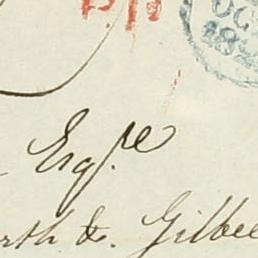 OC
18
Esq.re
rth &. Gilbe